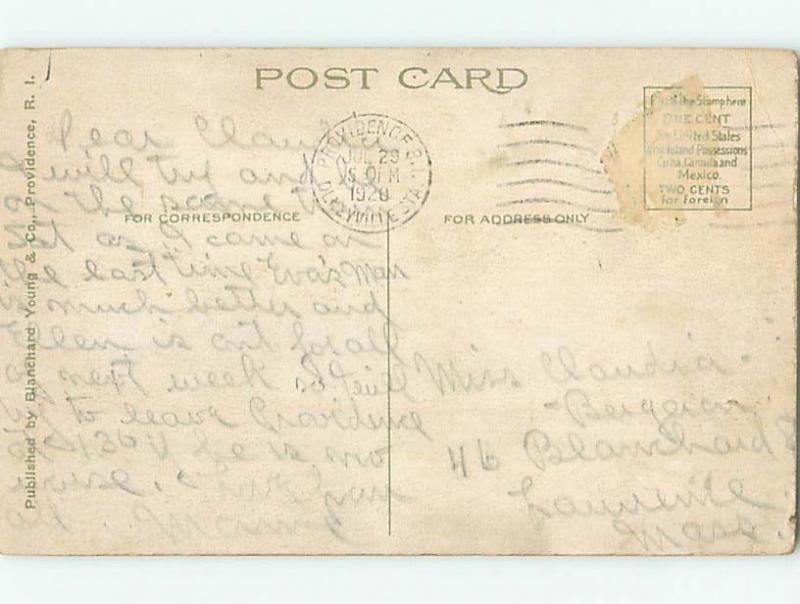 POST CARD
Published by Blanchard Young & Co., Providence, R. I.
PROVIDENCE R.I.
JUL 29
1920
OLNEYVILLE STA.
Place the Stamp here
ONE CENT
for United States
and Island Possessions
Cuba, Canada and
Mexico.
TWO CENTS
for Foreign
FOR CORRESPONDENCE
FOR ADDRESS ONLY
Dear Claudia
I will try and
on the same
as I came on
the last time Eva's Man
is much better and
is out for all
next week so I will
try to leave Providence
1 30 if he is no
Miss Claudia
46 Blanchard
Mass.